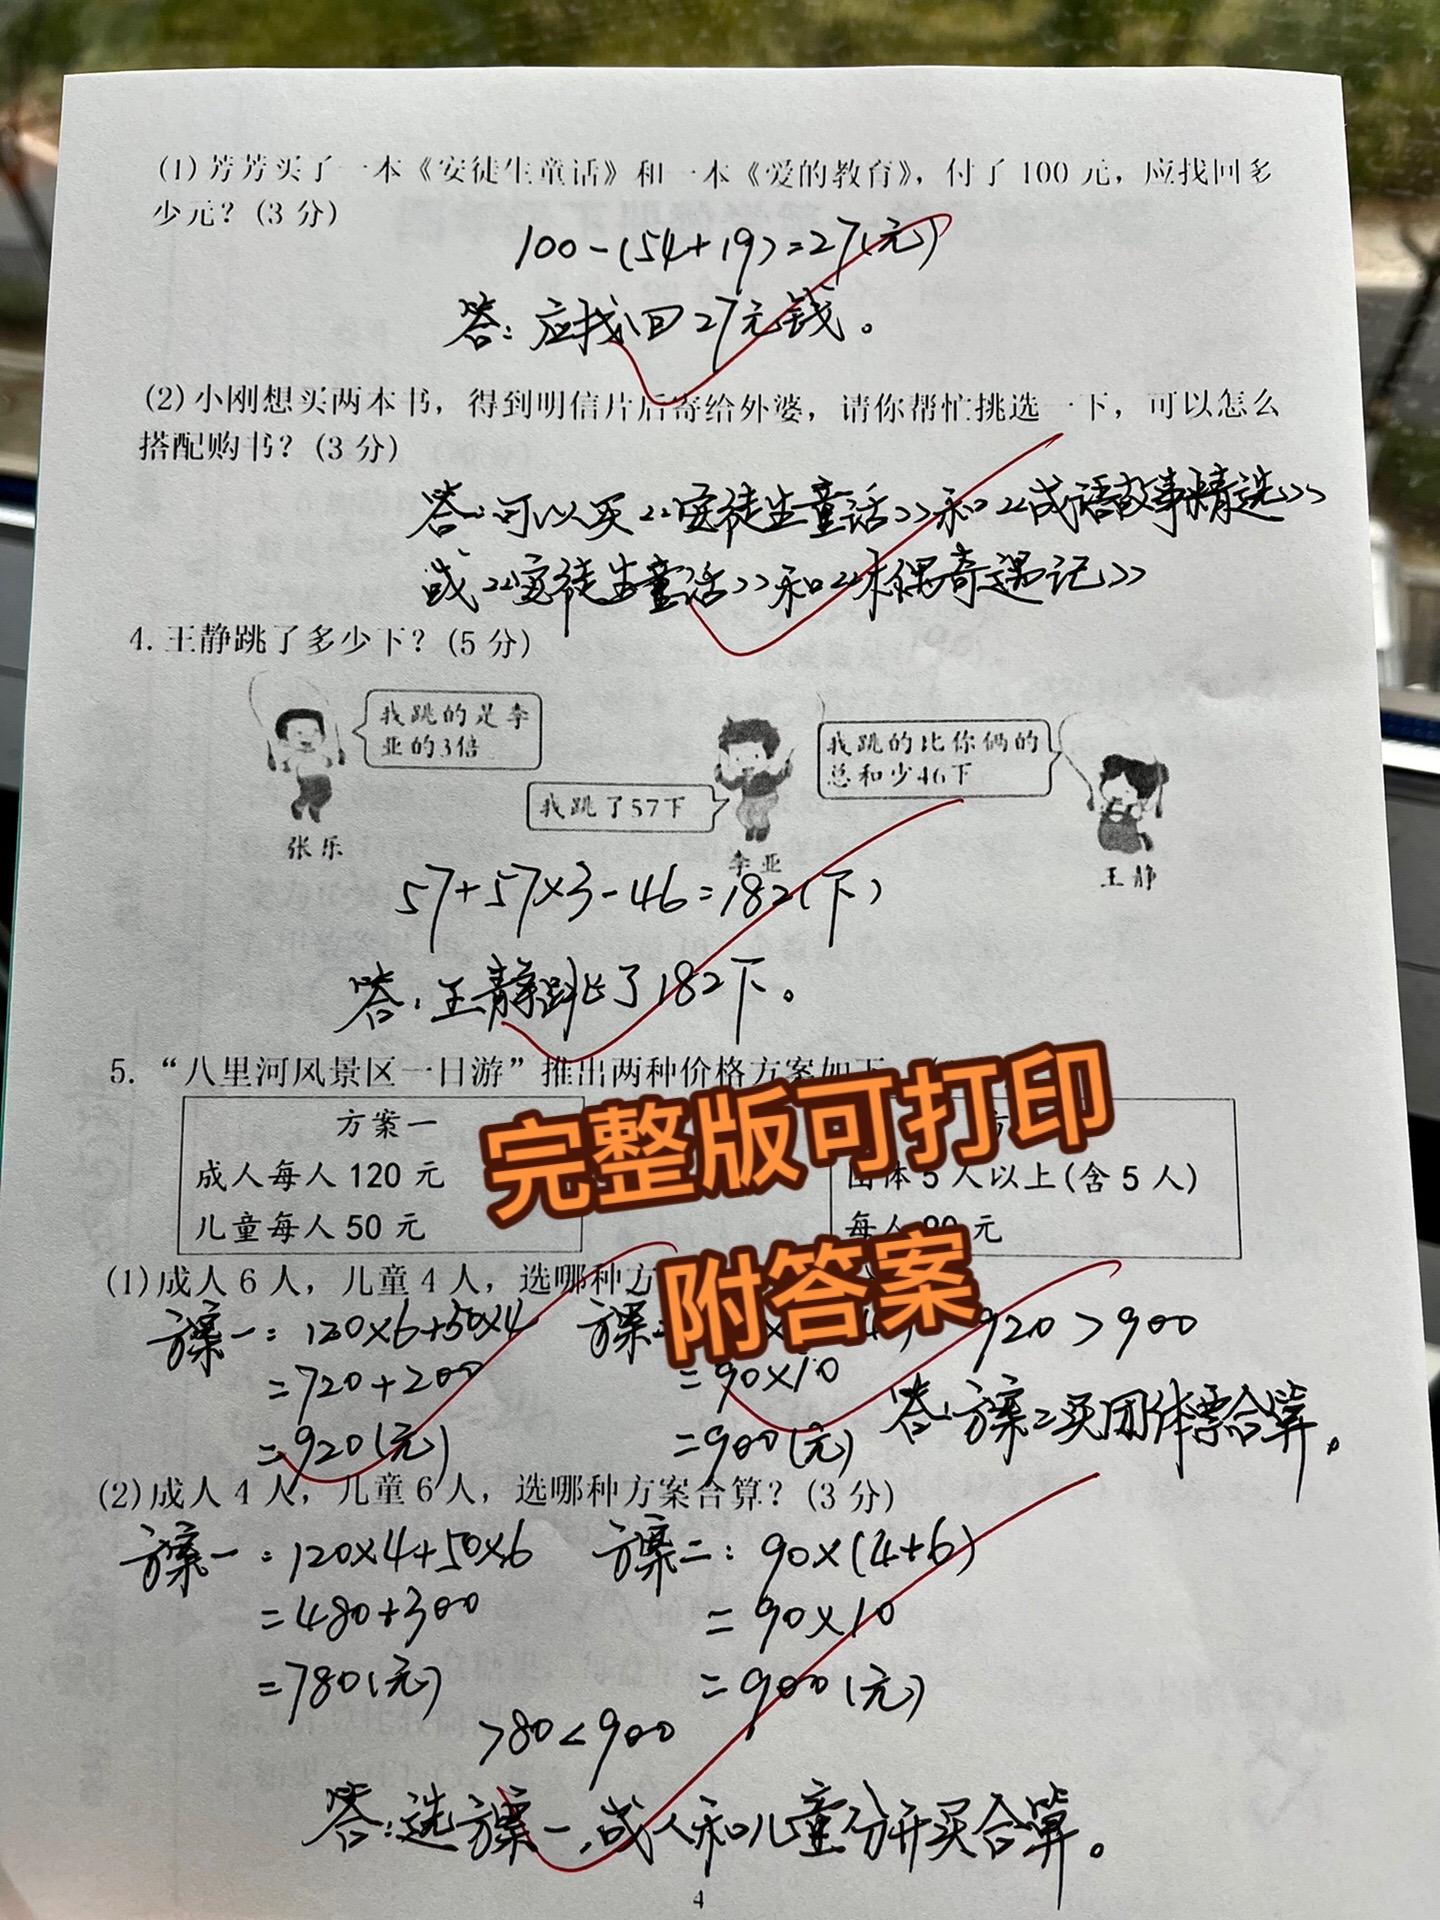 (1)芳芳买了一本《安徒生童话》和一本《爱的教育》，付了100元，应找回多
少元？(3分)
100-(54+19)=27(元)
答：应找回27元钱。
(2)小刚想买两本书，得到明信片后寄给外婆，请你帮忙挑选一下，可以怎么
搭配购书？(3分)
答：可以买《安徒生童话》和《成语故事精选》
或《安徒生童话》和《木偶奇遇记》
4.王静跳了多少下？(5分)
我跳的是李
亚的3倍
我跳的比你俩的
总和少46下
我跳了57下
张乐
李亚
王静
57+57×3-46=182(下)
答：王静跳了182下。
5.“八里河风景区一日游”推出两种价格方案如下
完整版可打印
方案一
成人每人120元
儿童每人50元
方
团体5人以上(含5人)
每人90元
附答案
(1)成人6人，儿童4人，选哪种方
方案一：120×6+50×4
=720+200
=920(元)
方案二
=90×10
=900(元)
920>900
答：方案二买团体票合算。
(2)成人4人，儿童6人，选哪种方案合算？(3分)
方案一：120×4+50×6
=480+300
=780(元)
方案二：90×(4+6)
=90×10
=900(元)
780<900
答：选方案一，成人和儿童分开买合算。
4